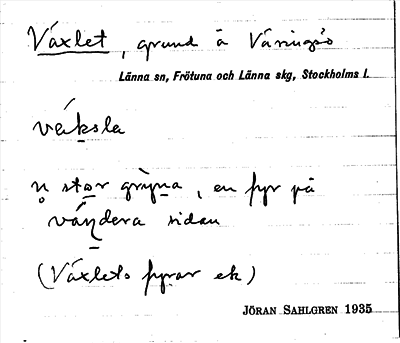 Växlet, grund å Väringsö
Länna sn, Frötuna och Länna skg, Stockholms l.
väksla
n stor grỳna, en fyr på
vándera sidan
(Växlets fyrar ek)
JÖRAN SAHLGREN 1935